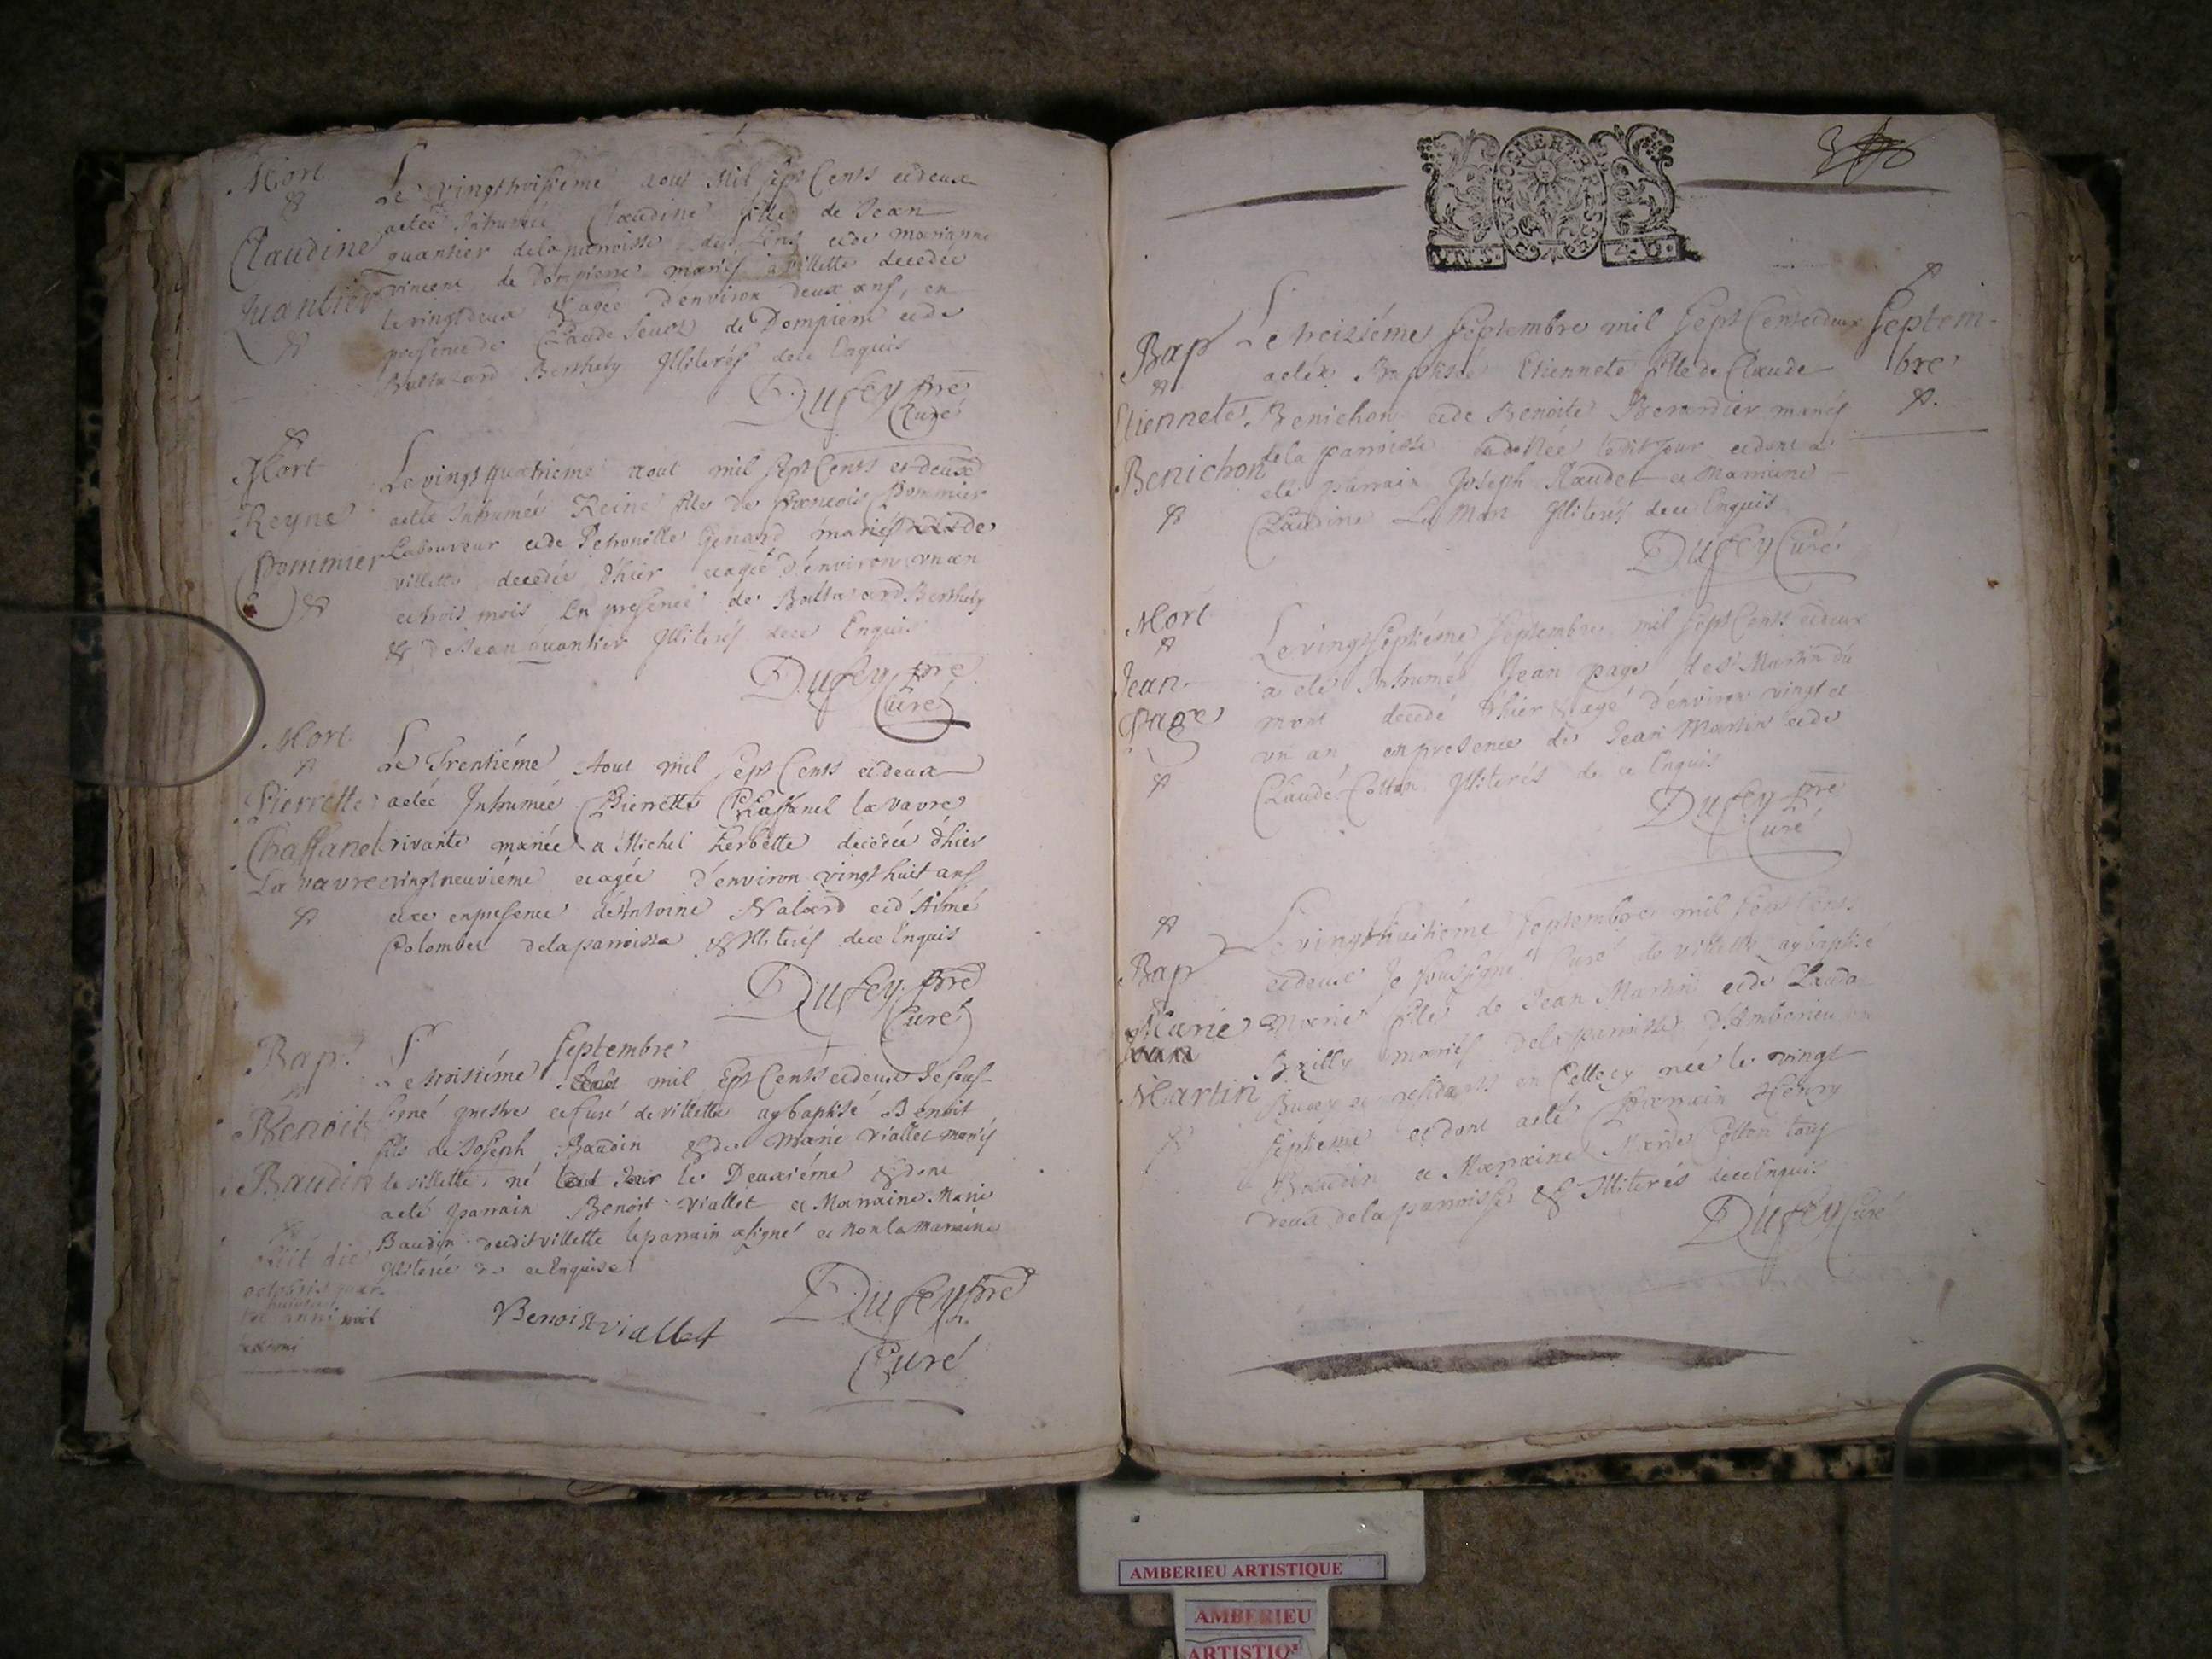 Mort
Claudine
quantier
Le vingt troisiéme aout mil sept Cents et deux
a eté Inhumée Claudine fille de Jean
quantier de la parroisse de Lent et de marianne
vincent de Dompierre mariés a villette decedée
le vingt deux & agée d'environ deux ans, en
presence de Claude de Dompierre et de
Baltazard Berthely Illiterés de ce Enquis
Dufey pre
Curé
Mort
Reyne
Pommier
Le vingt quatriéme aout mil sept Cents et deux
a eté Inhumée Reine fille de francois Pommier
Laboureur et de Petronille Genard mariés de
villette decedée d'hier et agée d'environ un an
et trois mois En presence de Baltazard Berthely
& de Jean quantier Illiterés de ce Enquis
Dufey pre
Curé
Mort
Pierrette
Chaffanel
La vavre
Le Trentiéme Aout mil sept Cents et deux
a eté Inhumée Pierrette Chaffanel la vavre
vivante mariée a Michel herbette decedée d'hier
vingt neuviéme et agée d'environ vingt huit ans
et ce en presence de Antoine Nalard et d'Aimé
Colombet de la parroisse & Illiterés de ce Enquis
Dufey pre
Curé
Bap.
Benoit
Baudin
septembre
Le troisiéme mil sept Cents et deux Je sous-
signé prestre et Curé de villette ay baptisé Benoit
fils de Joseph Baudin & de Marie viallet mariés
de villette né le Deuxiéme & dont
a eté parrain Benoit viallet et Marraine Marie
Baudin dudit villette le parrain a signé et non la marraine
Illiterée de ce Enquise
obiit die
octobris
anni
Benoist viallet
Dufey pre
Curé
Septem-
bre
Bap
Etiennete
Benichon
Le treiziéme septembre mil sept Cents et deux
a eté Baptisée Etiennete fille de Claude
Benichon et de Benoite mariés
de la parroisse née ledit Jour et dont a
eté parrain Joseph Naudet et Marraine
Claudine Illiterés de ce Enquis
Dufey Curé
Mort
Jean
Page
Le vingt septiéme septembre mil sept Cents et deux
a eté Inhumé Jean page de st Martin du
mont decedé d'hier & agé d'environ vingt et
un an en presence de Jean Martin et de
Claude Cottan Illiterés de ce Enquis
Dufey pre
Curé
Bap
Marie
Martin
Le vingt huitiéme septembre mil sept Cents
et deux Je soussigné Curé de villette ay baptisé
Marie fille de Jean Martin et de Clauda
mariés de la parroisse d'Amberieu en
Bugey et residants en née le vingt
septieme et dont a eté Parrain Henry
Baudin et Marraine Marie Cottan tous
deux de la parroisse & Illiterés de ce Enquis
Dufey Curé
AMBERIEU ARTISTIQUE
AMBERIEU